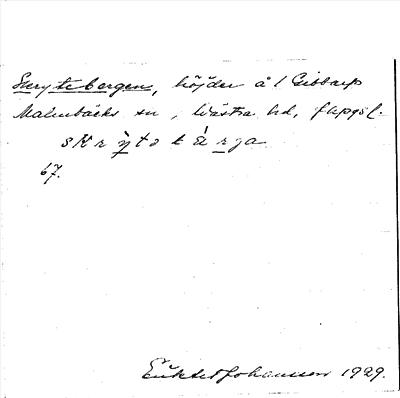 Skrytebergen, höjder å 1 Gisbarp
Malmbäcks sn, Västra hd, Jkpgs l.
skrỳtə bárja
67.
Johansson 1929.